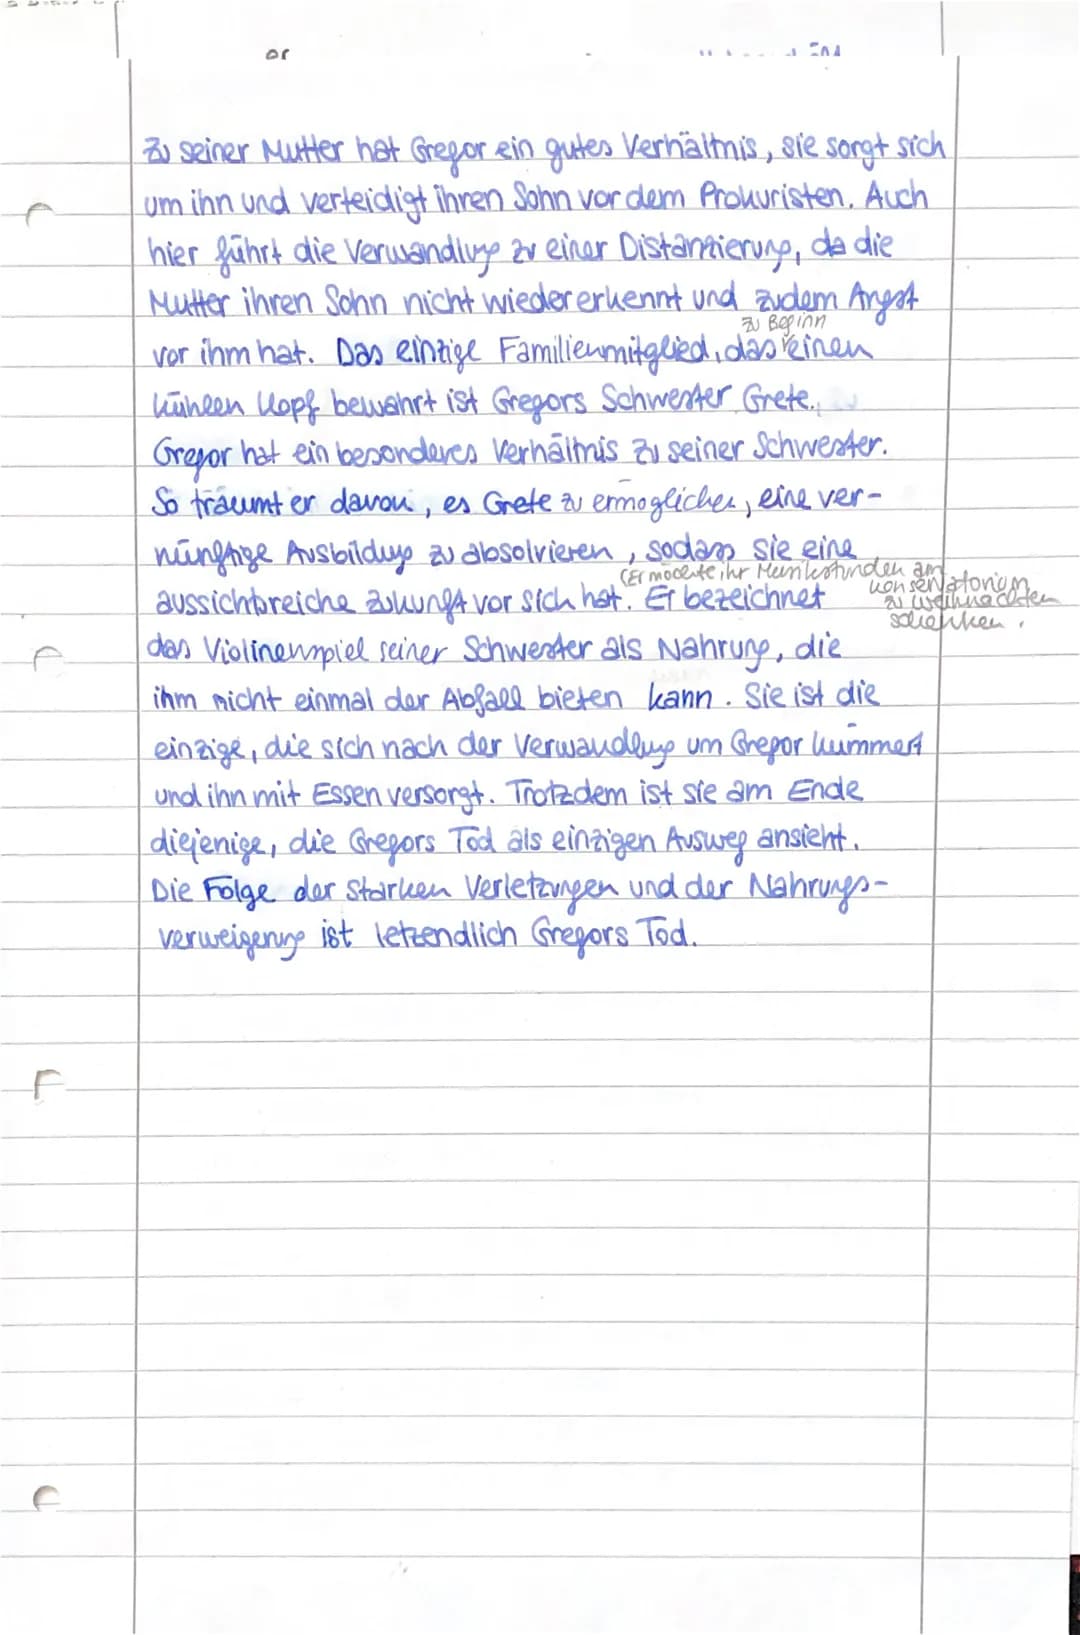 or
Zu seiner Mutter hat Gregor ein gutes Verhältnis, sie sorgt sich
um ihn und verteidigt ihren Sohn vor dem Prokuristen. Auch
hier führt die Verwandlung zu einer Distanzierung, da die
Mutter ihren Sohn nicht wiedererkennt und zudem Angst
zu Beginn
vor ihm hat. Das einzige Familienmitglied, das einen
kühlen Kopf bewahrt ist Gregors Schwester Grete.
Gregor hat ein besonderes Verhältnis zu seiner Schwester.
So träumt er davon, es Grete zu ermöglichen, eine ver-
nünftige Ausbildung zu absolvieren, sodass sie eine
(Er möchte ihr Musikstunden am
Konservatorium
zu Weihnachten
schenken.
aussichtsreiche Zukunft vor sich hat. Er bezeichnet
das Violinenspiel seiner Schwester als Nahrung, die
ihm nicht einmal der Abfall bieten kann. Sie ist die
einzige, die sich nach der Verwandlung um Gregor kümmert
und ihn mit Essen versorgt. Trotzdem ist sie am Ende
diejenige, die Gregors Tod als einzigen Ausweg ansieht.
Die Folge der starken Verletzungen und der Nahrungs-
verweigerung ist letzendlich Gregors Tod.